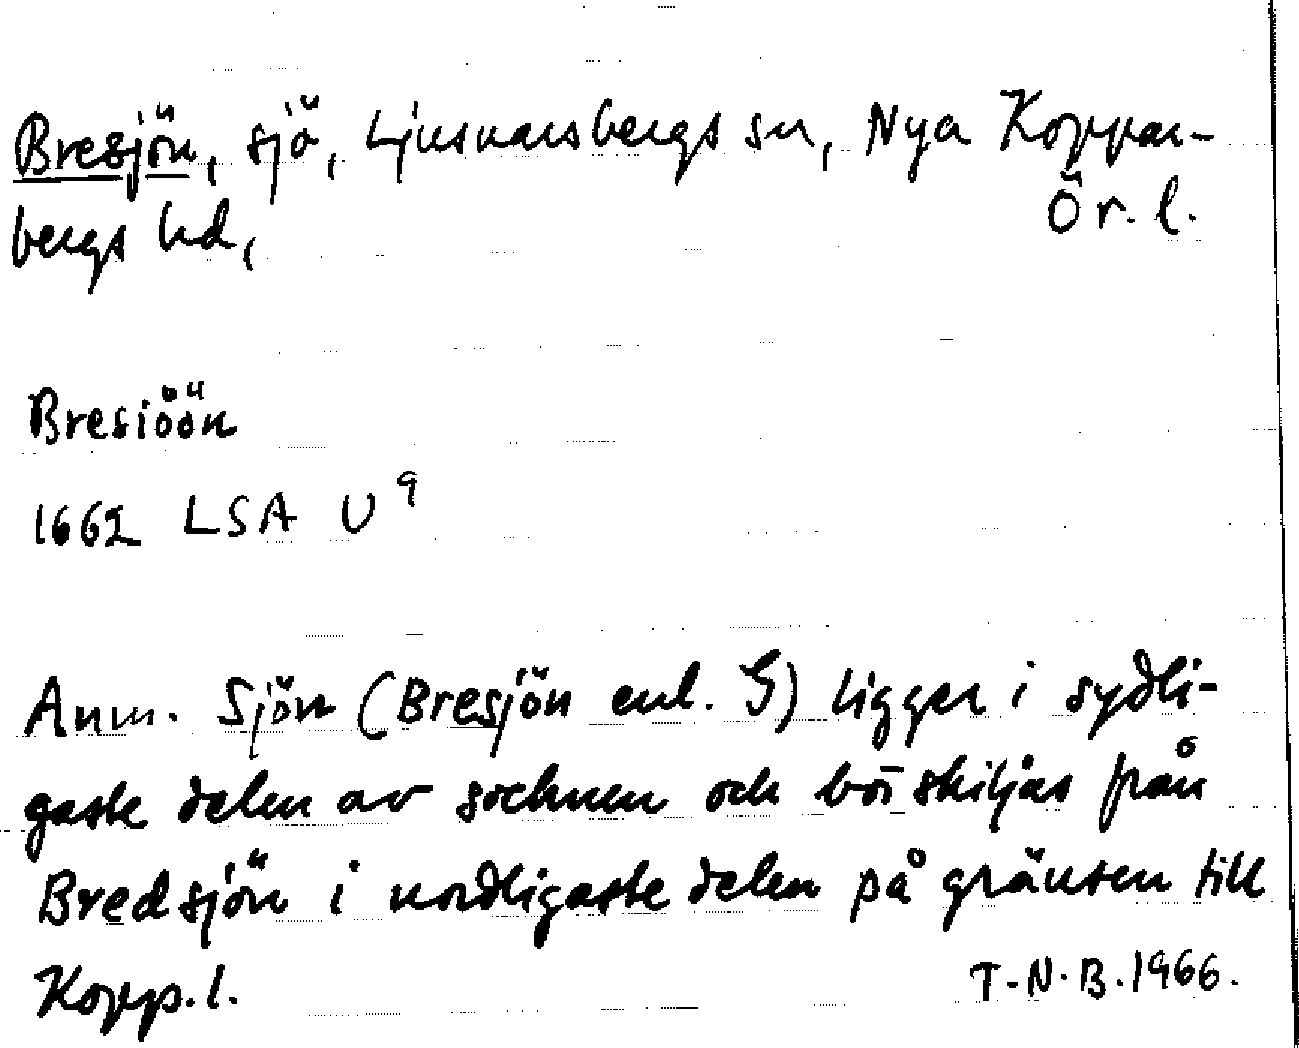 Bresjön, sjö, Ljusnarsbergs sn, Nya Koppar-
bergs hd, Ör. l.
Bresiöön
1662 LSA U⁹
Anm. Sjön (Bresjön enl. G) ligger i sydli-
gaste delen av socknen och bör skiljas från
Bredsjön i nordligaste delen på gränsen till
Kopp. l. T.N.B. 1966.